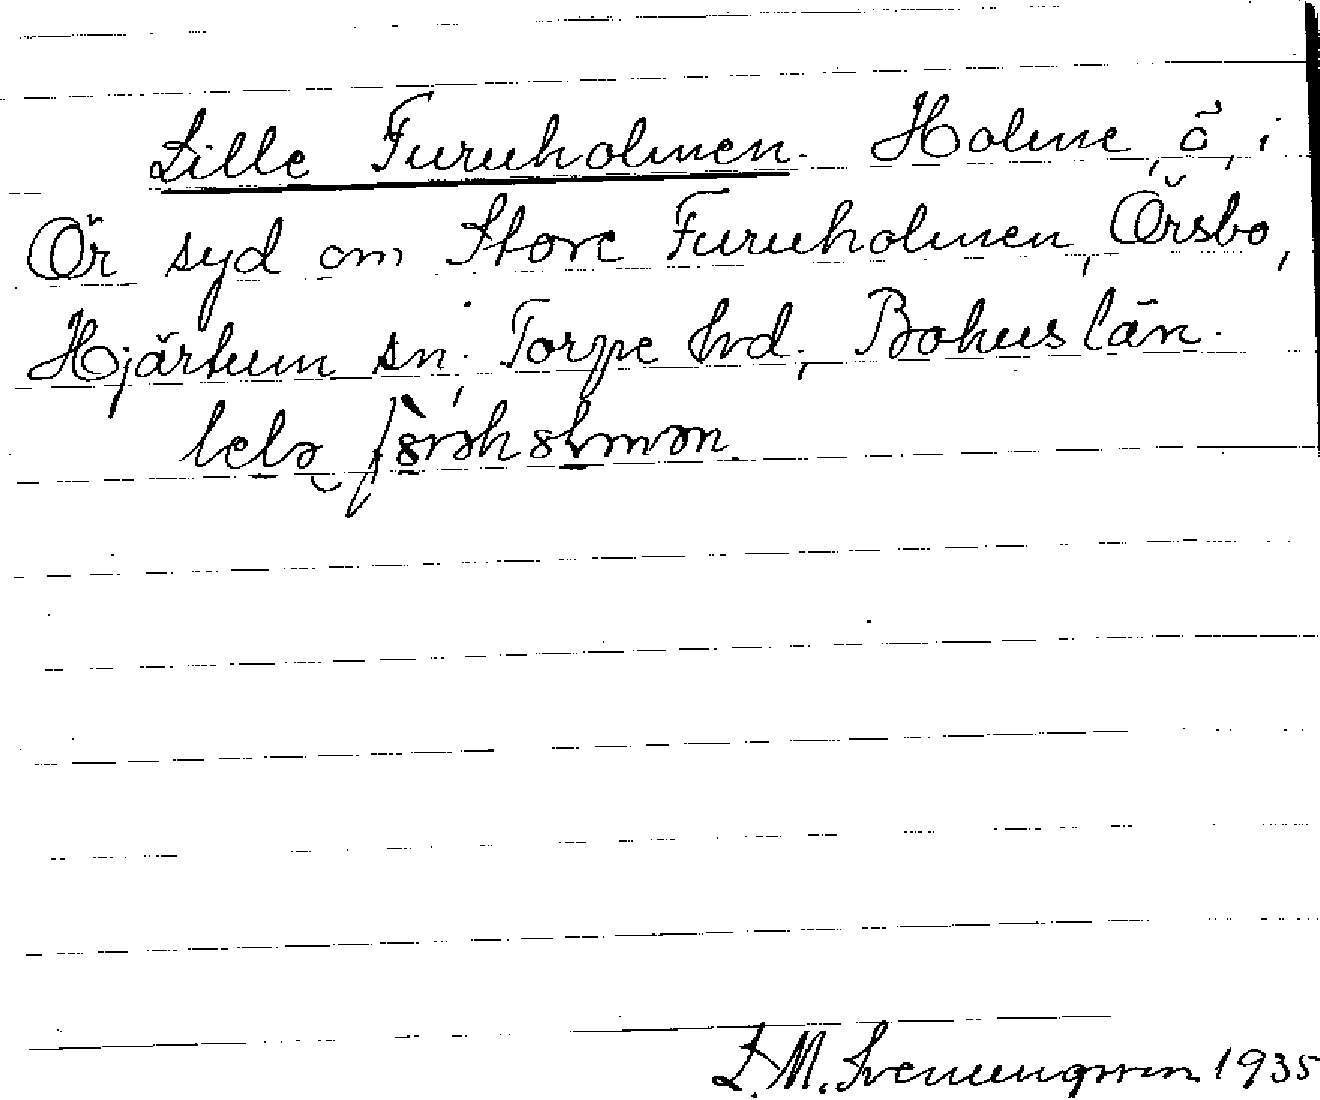 Lille Furuholmen. Holme, ö, i
Ör syd om Store Furuholmen, Örsbo,
Hjärtum sn, Torpe hd, Bohuslän.
lelə
L. M. Svenungsson 1935